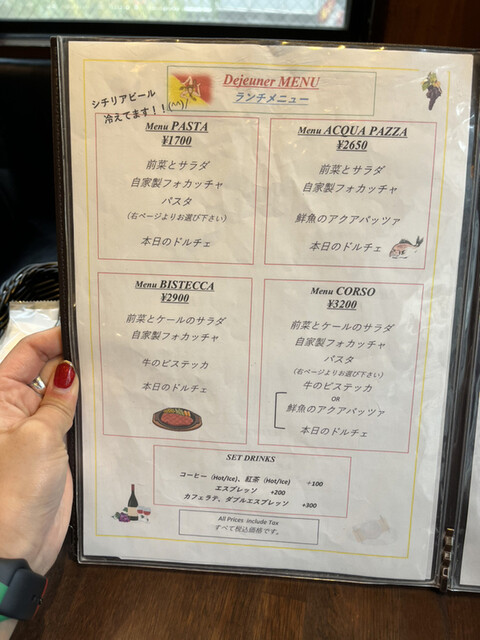 Dejeuner MENU
ランチメニュー
シチリアビール
冷えてます！！(^^)/
Menu PASTA
¥1700
前菜とサラダ
自家製フォカッチャ
パスタ
（右ページよりお選び下さい）
本日のドルチェ
Menu ACQUA PAZZA
¥2650
前菜とサラダ
自家製フォカッチャ
鮮魚のアクアパッツァ
本日のドルチェ
Menu BISTECCA
¥2900
前菜とケールのサラダ
自家製フォカッチャ
牛のビステッカ
本日のドルチェ
Menu CORSO
¥3200
前菜とケールのサラダ
自家製フォカッチャ
パスタ
（右ページよりお選び下さい）
牛のビステッカ
OR
鮮魚のアクアパッツァ
本日のドルチェ
SET DRINKS
コーヒー（Hot/Ice)、紅茶（Hot/Ice) +100
エスプレッソ +200
カフェラテ、ダブルエスプレッソ +300
All Prices include Tax
すべて税込価格です。